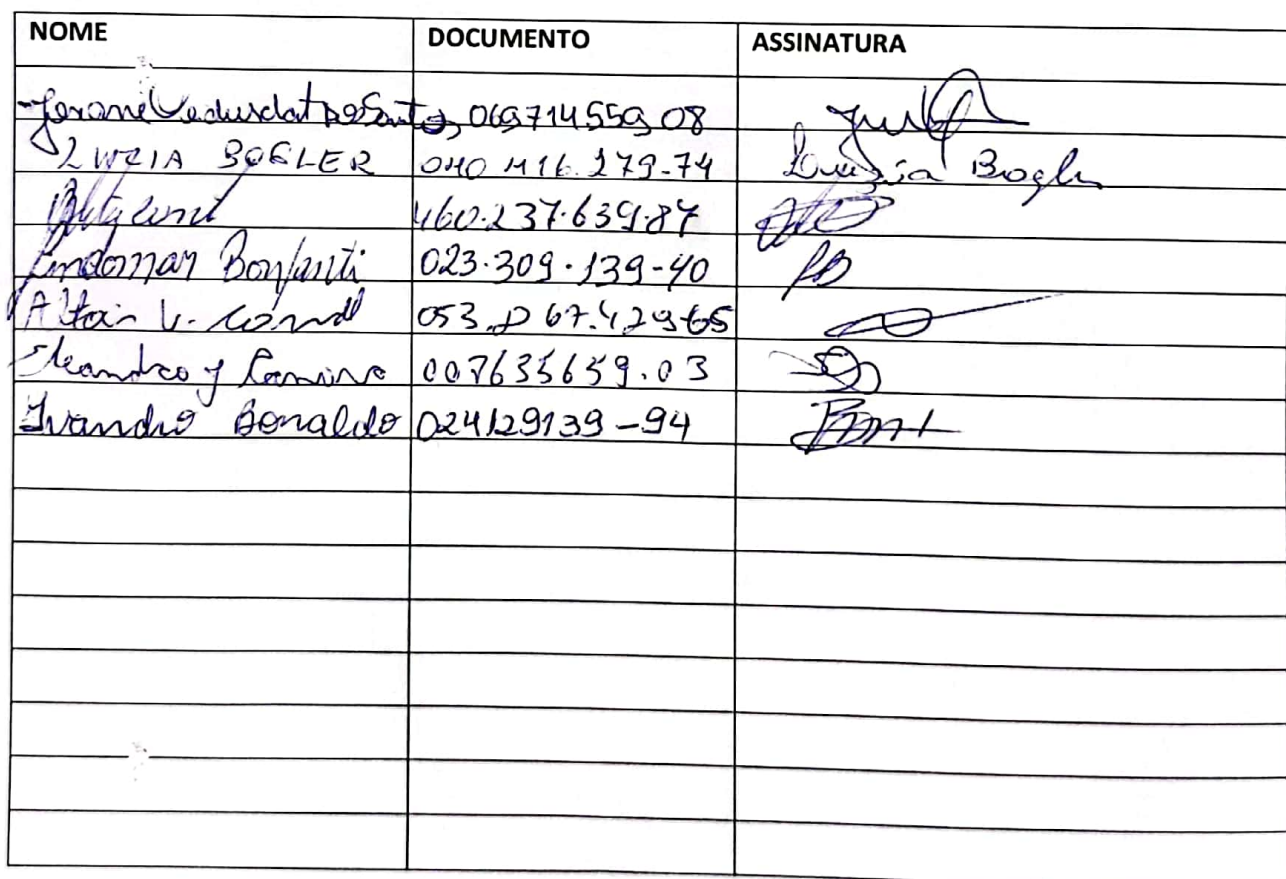 NOME DOCUMENTO ASSINATURA
dos Santos 069714559 08
LUZIA BOGLER 040 416.279-74 Luzia Bogler
460.237.639.87
Lindomar Bonfanti 023.309.139-40 LB
Altair V. 053.067.429-65
Leandro J 007635659.03
Ivandro Bonaldo 024129139-94